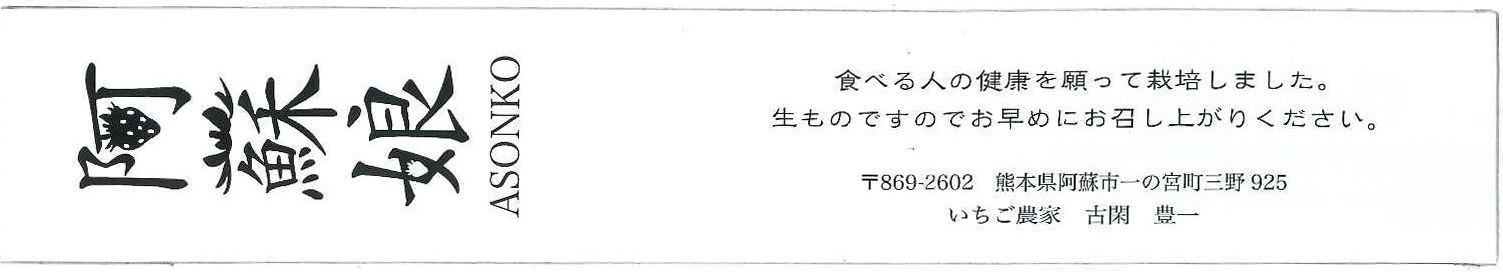 阿蘇娘
ASONKO
食べる人の健康を願って栽培しました。
生ものですのでお早めにお召し上がりください。
〒869-2602　熊本県阿蘇市一の宮町三野925
いちご農家　古閑　豊一